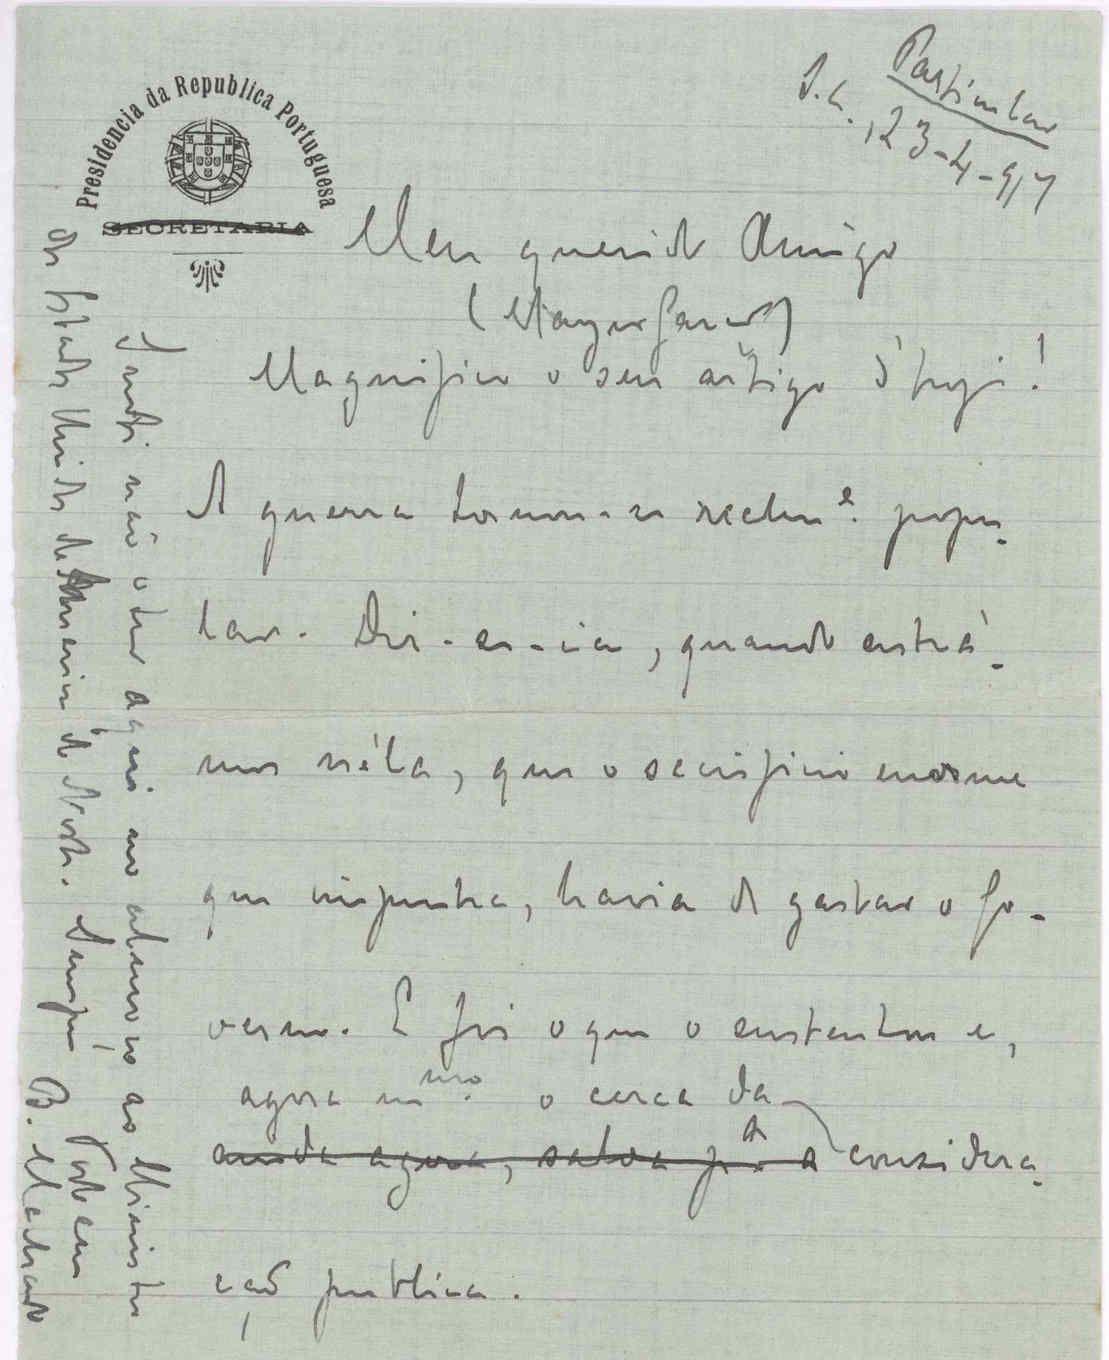 Presidencia da Republica Portuguesa
SECRETARIA
Particular
S. C., 23-4-917
Meu querido Amigo
(Mayer Garção)
Magnifico o seu artigo d'hoje!
A guerra tornou-se realm.e popu-
lar. Dir-se-ia, quando entrá-
mos néla, que o sacrificio enorme
que impunha, havia de gastar o go-
verno. E foi o que o sustentou e,
agora m.mo o cerca da
ainda agora, salva p.te a considera-
ção publica.
Senti não o ter aqui no almoço ao Ministro
dos Estados Unidos da America do Norte. Sempre
Todo seu
B. Machado